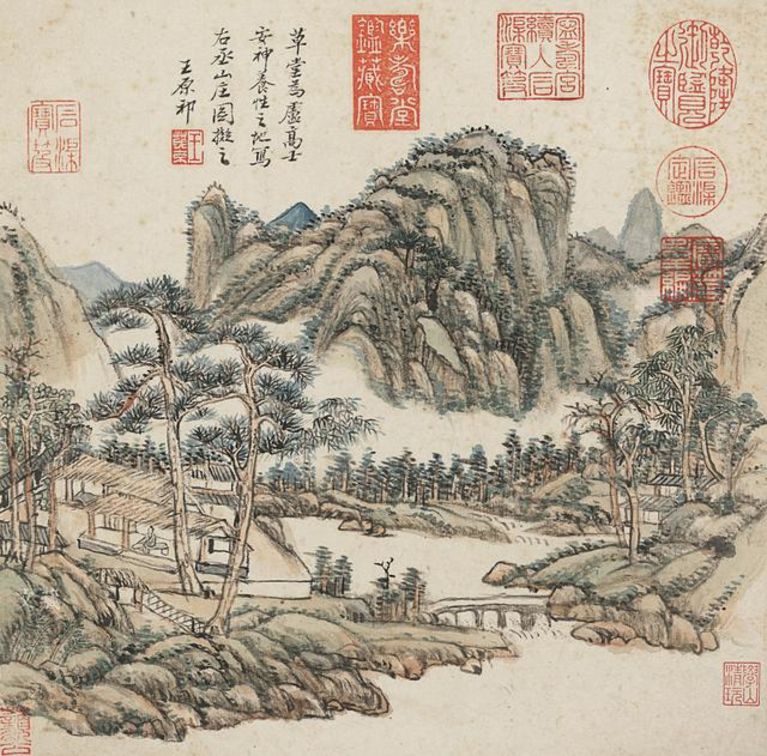 乾隆御覽之寶
石渠定鑑
寶笈重編
寧壽宮續入石渠寶笈
樂壽堂鑑藏寶
草堂為盧高士
安神養性之地寫
右丞山庄圖擬之
王原祁
石渠寶笈